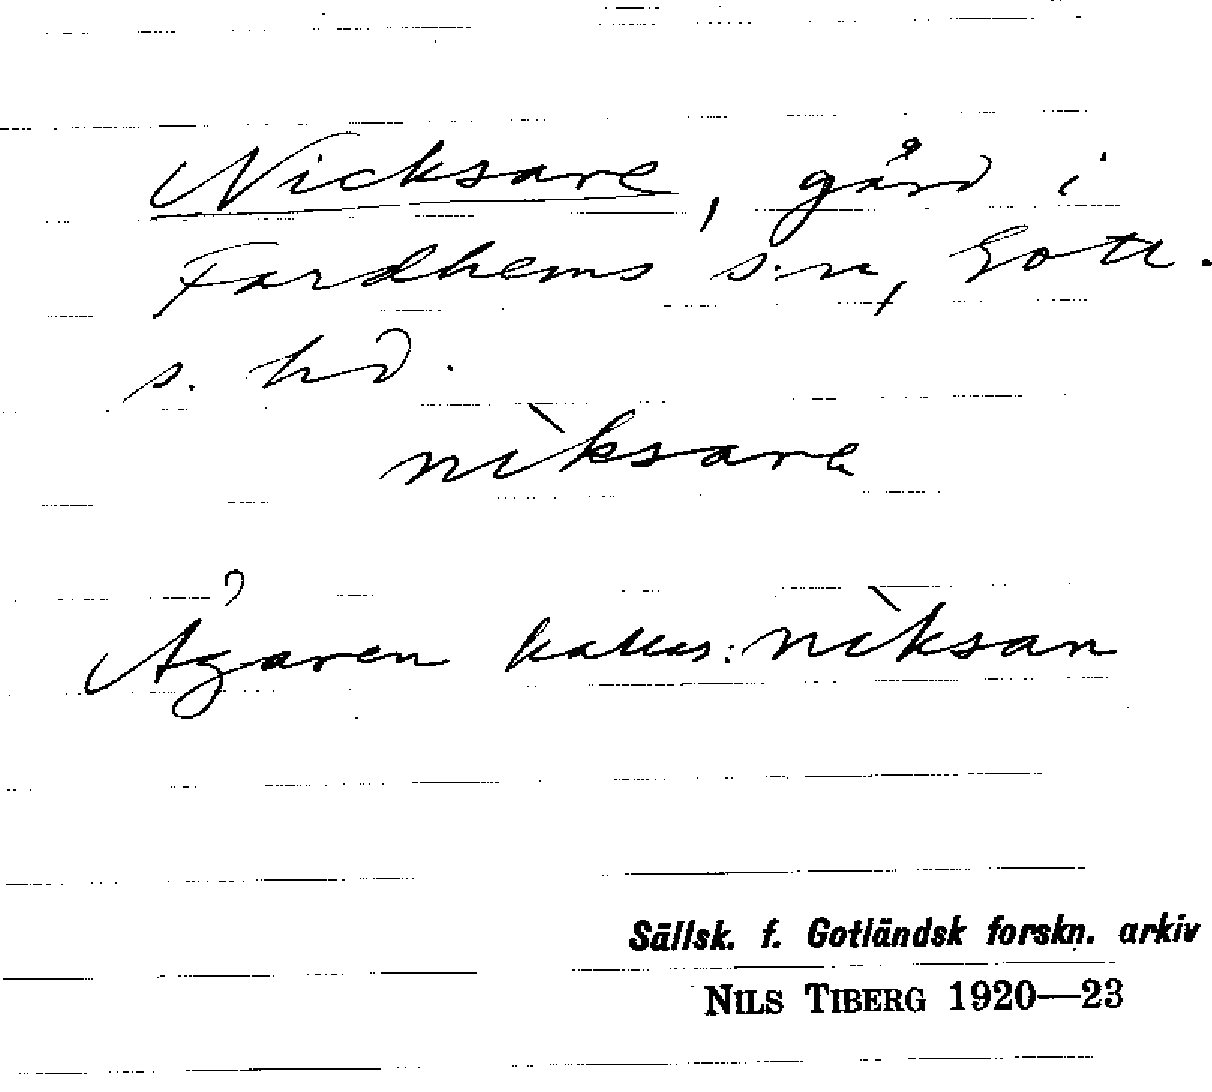 Nicksare, gård i
Fardhems s:n, Gotl.
s. hd.
nìksarɐ
Ägaren kallas: nìksan
Sällsk. f. Gotländsk forskn. arkiv
NILS TIBERG 1920—23